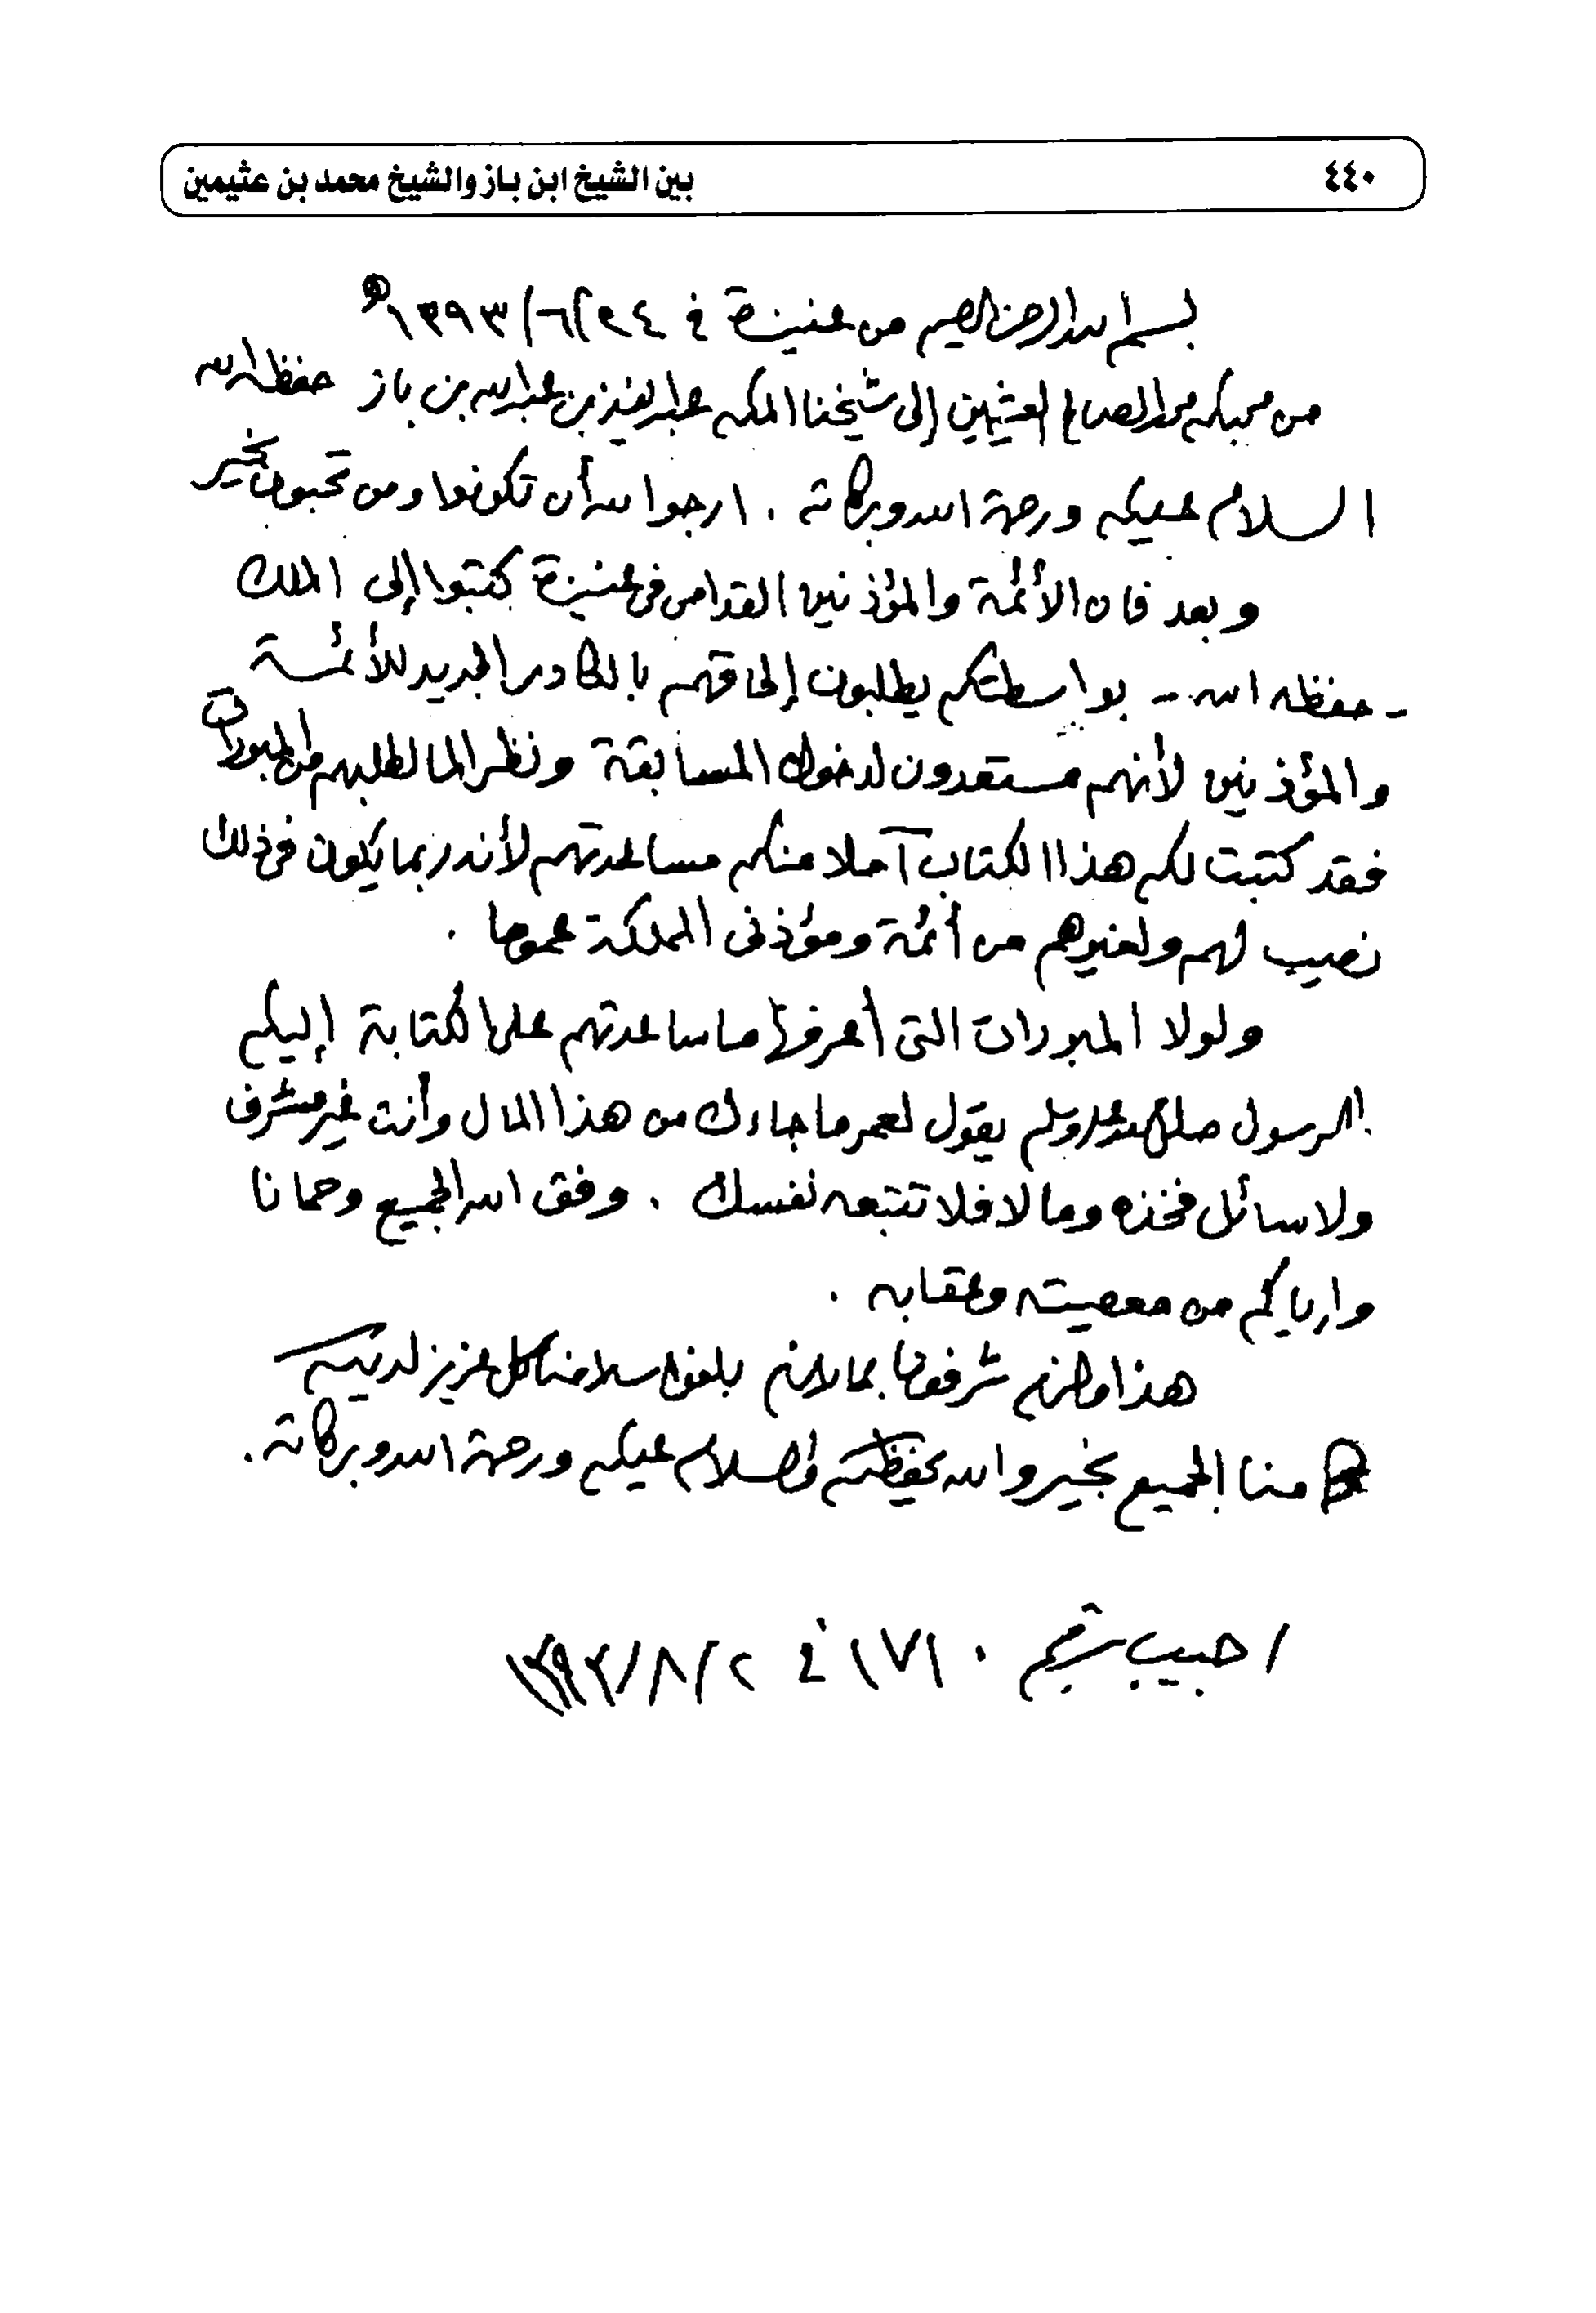 ٤٤٠
بين الشيخ ابن باز والشيخ محمد بن عثيمين
بسم الله الرحمن الرحيم من عنيزة في ٢٤/٦/١٣٩٣هـ
من محبكم محمد الصالح العثيمين إلى شيخنا المكرم عبد العزيز بن عبد الله بن باز حفظه الله
السلام عليكم ورحمة الله وبركاته . ارجوا الله أن تكونوا ومن تحبون بخير
وبعد فان الأئمة والمؤذنين القدامى في عنيزة كتبوا إلى الملك
- حفظه الله - بواسطتكم يطلبون إلحاقهم بالكادر الجديد للأئمة
والمؤذنين لأنهم مستعدون لدخول المسابقة ونظرا لما لطلبهم من المبررات
فقد كتبت لكم هذا الكتاب آملا منكم مساعدتهم لأنه ربما يكون في ذلك
نصيب لهم ولغيرهم من أئمة ومؤذني المملكة عموما .
ولولا المبررات التي أعرفها ما ساعدتهم على الكتابة إليكم
الرسول صلى الله عليه وسلم يقول لعمر ما جاءك من هذا المال وأنت غير مشرف
ولا سائل فخذه وما لا فلا تتبعه نفسك . وفق الله الجميع وحمانا
وإياكم من معصيته وعقابه .
هذا ولازم شرفونا بما لازم بلغوا سلامنا كل عزيز لديكم
منا الجميع بخير والله يحفظكم والسلام عليكم ورحمة الله وبركاته .
اجيب برقم ١٧١٠ في ٢/٨/١٣٩٣